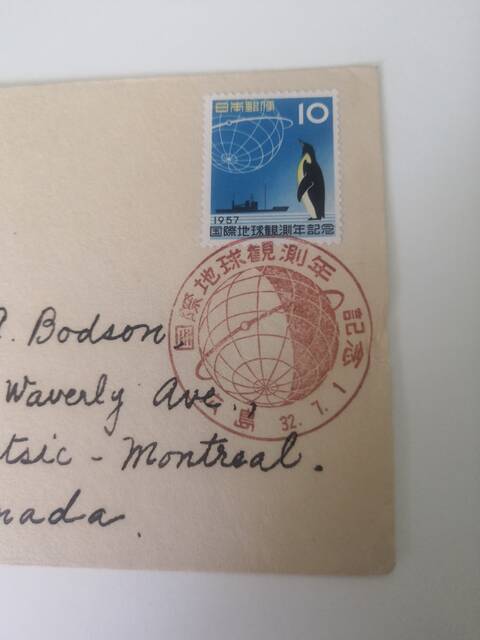 日本郵便 10
1957
国際地球観測年記念
国際地球観測年 記念
32.7.1
Bodson,
Waverly Ave.,
tsic - Montreal.
nada.